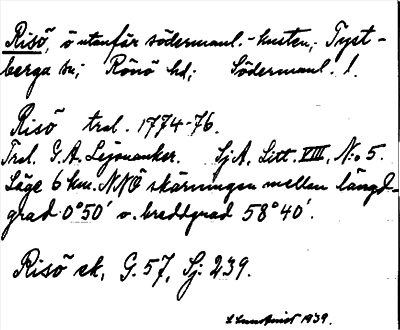 Risö, ö utanför södermanl.-kusten; Tyst-
berga sn; Rönö hd; Södermanl. l.
Risö trol. 1774-76.
Trol. G.A. Lejonanker. SjA, Litt. VIII, N:o 5.
Läge 6 km. NNÖ skärningen mellan längd-
grad 0°50' o. breddgrad 58°40'.
Risö sk, G. 57, Sj. 239.
S Lundqvist 1939.